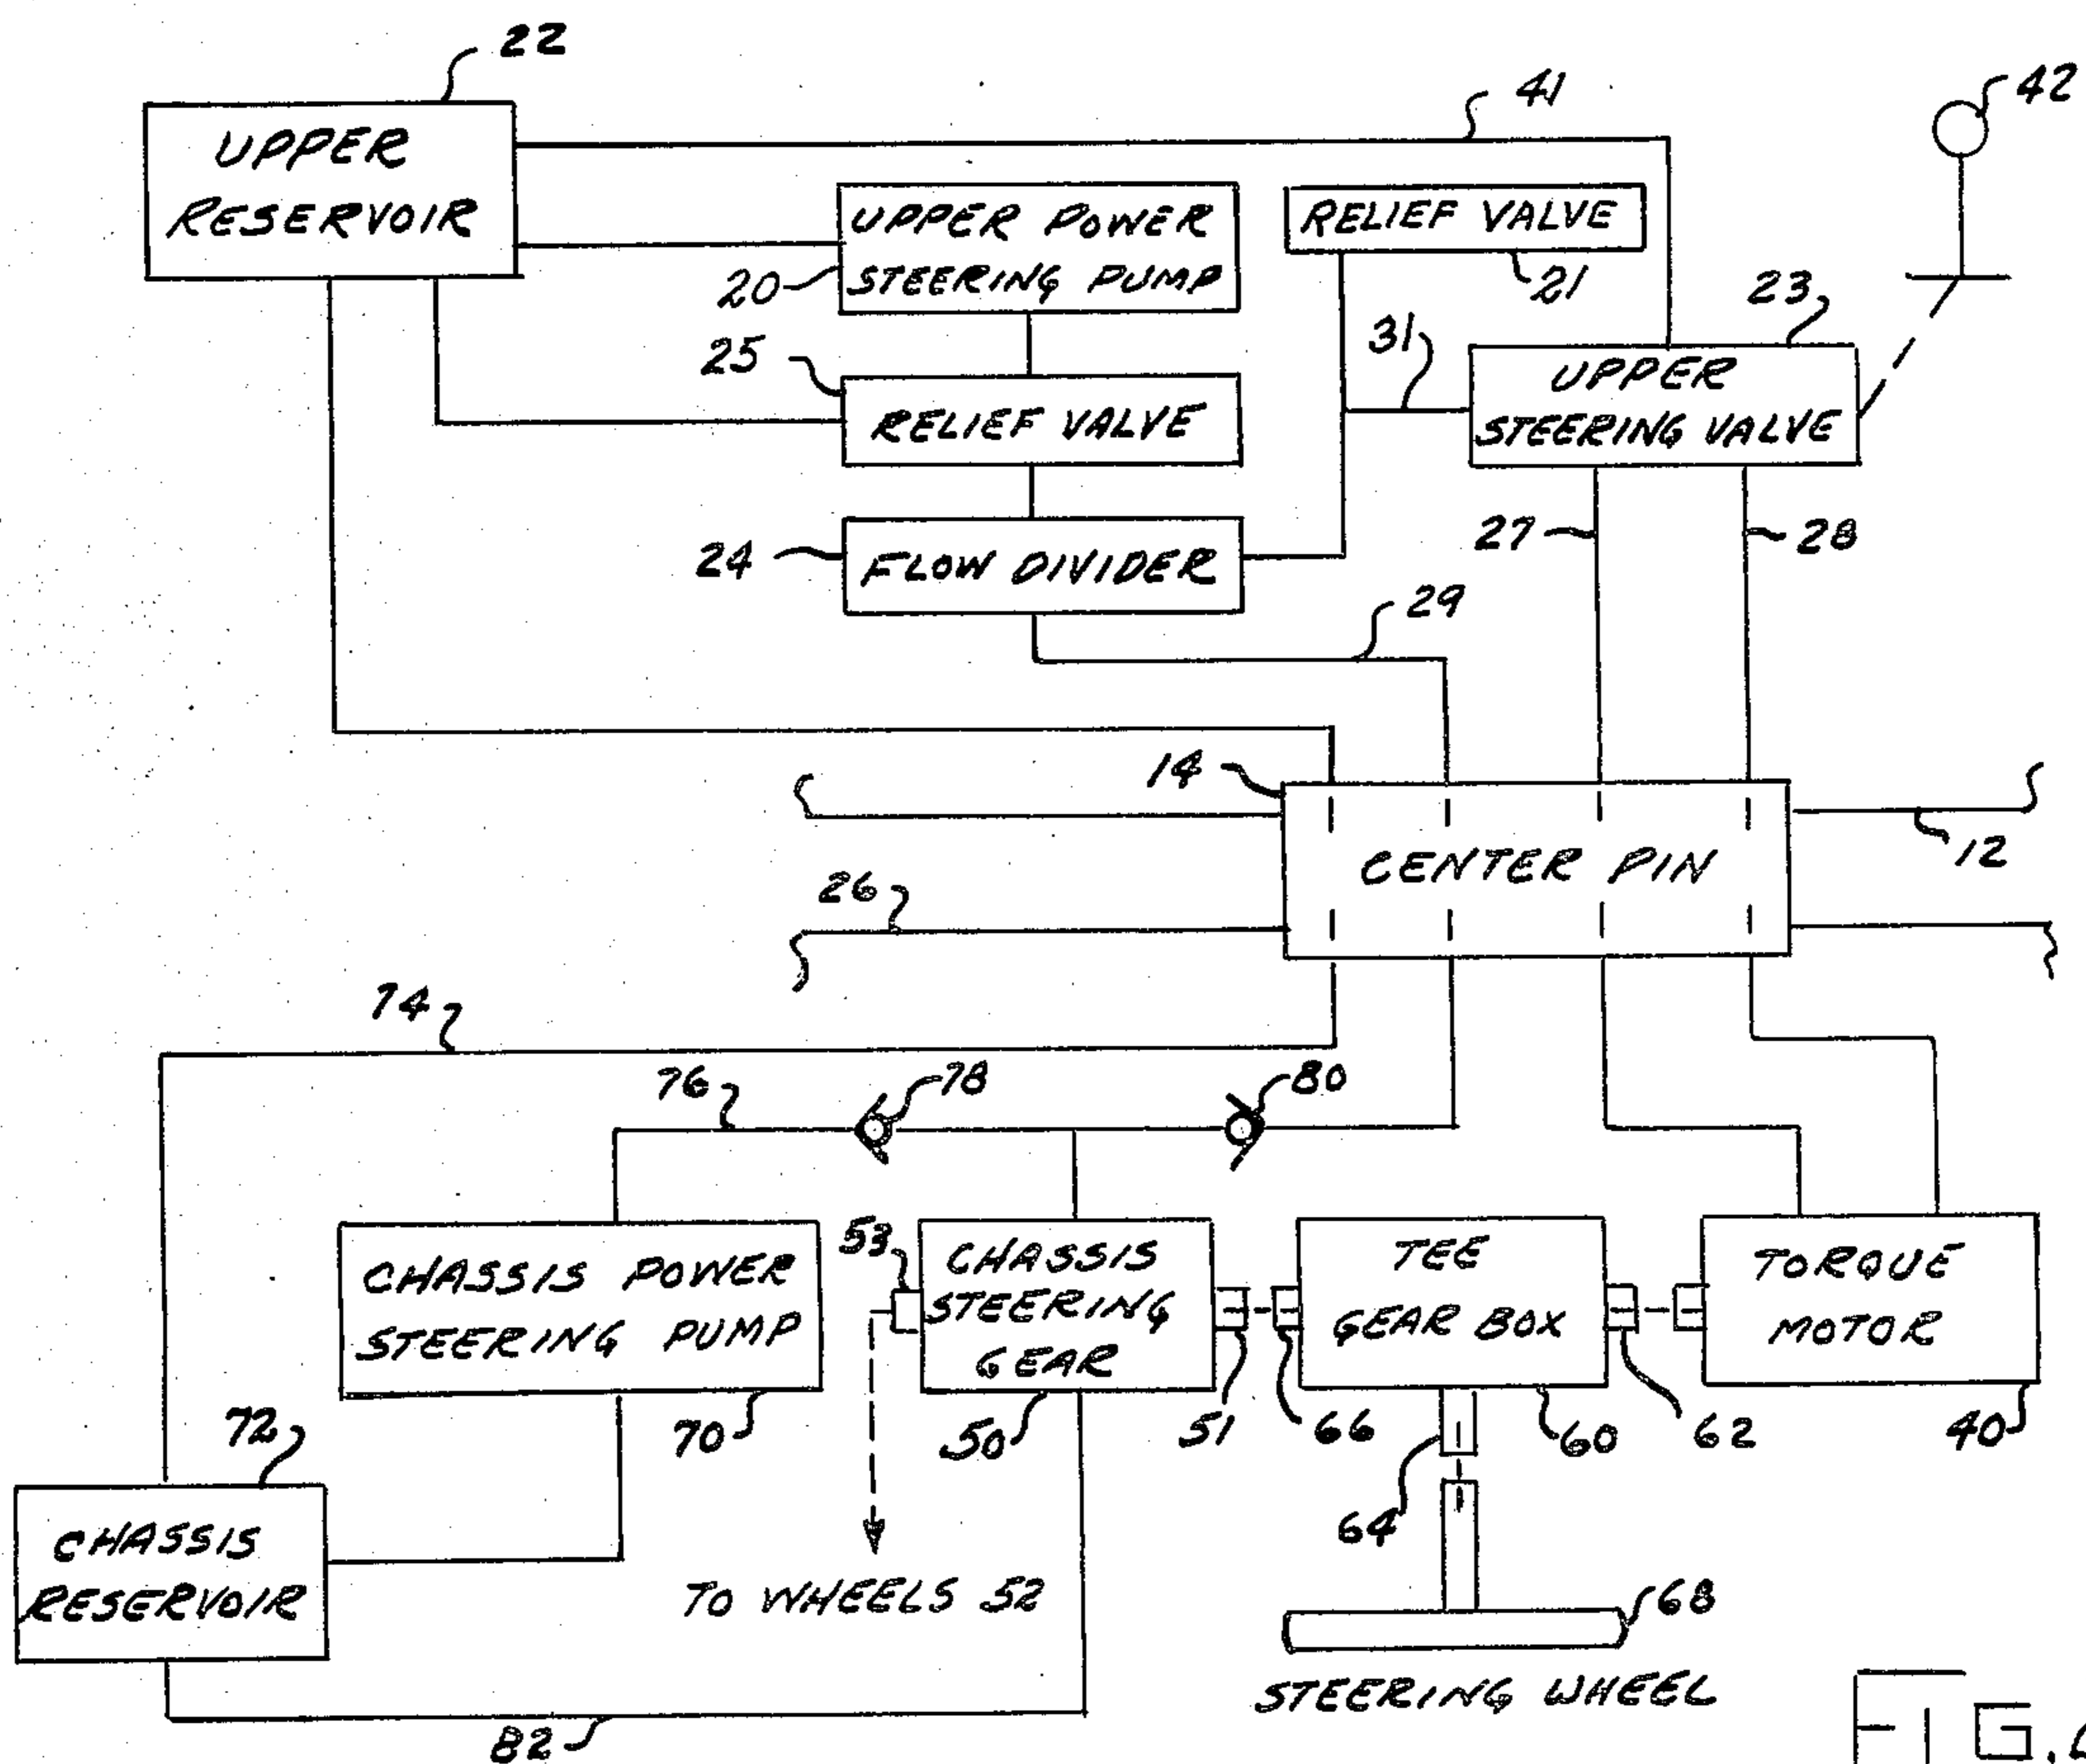 22
41
42
UPPER
RESERVOIR
UPPER POWER
STEERING PUMP
20
RELIEF VALVE
21
23
31
25
UPPER
STEERING VALVE
RELIEF VALVE
24
FLOW DIVIDER
27
28
29
14
12
CENTER PIN
26
74
76
78
80
53
CHASSIS POWER
STEERING PUMP
CHASSIS
STEERING
GEAR
TEE
GEAR BOX
TORQUE
MOTOR
72
70
50
51
66
60
62
40
64
CHASSIS
RESERVOIR
TO WHEELS 52
68
STEERING WHEEL
82
FIG.